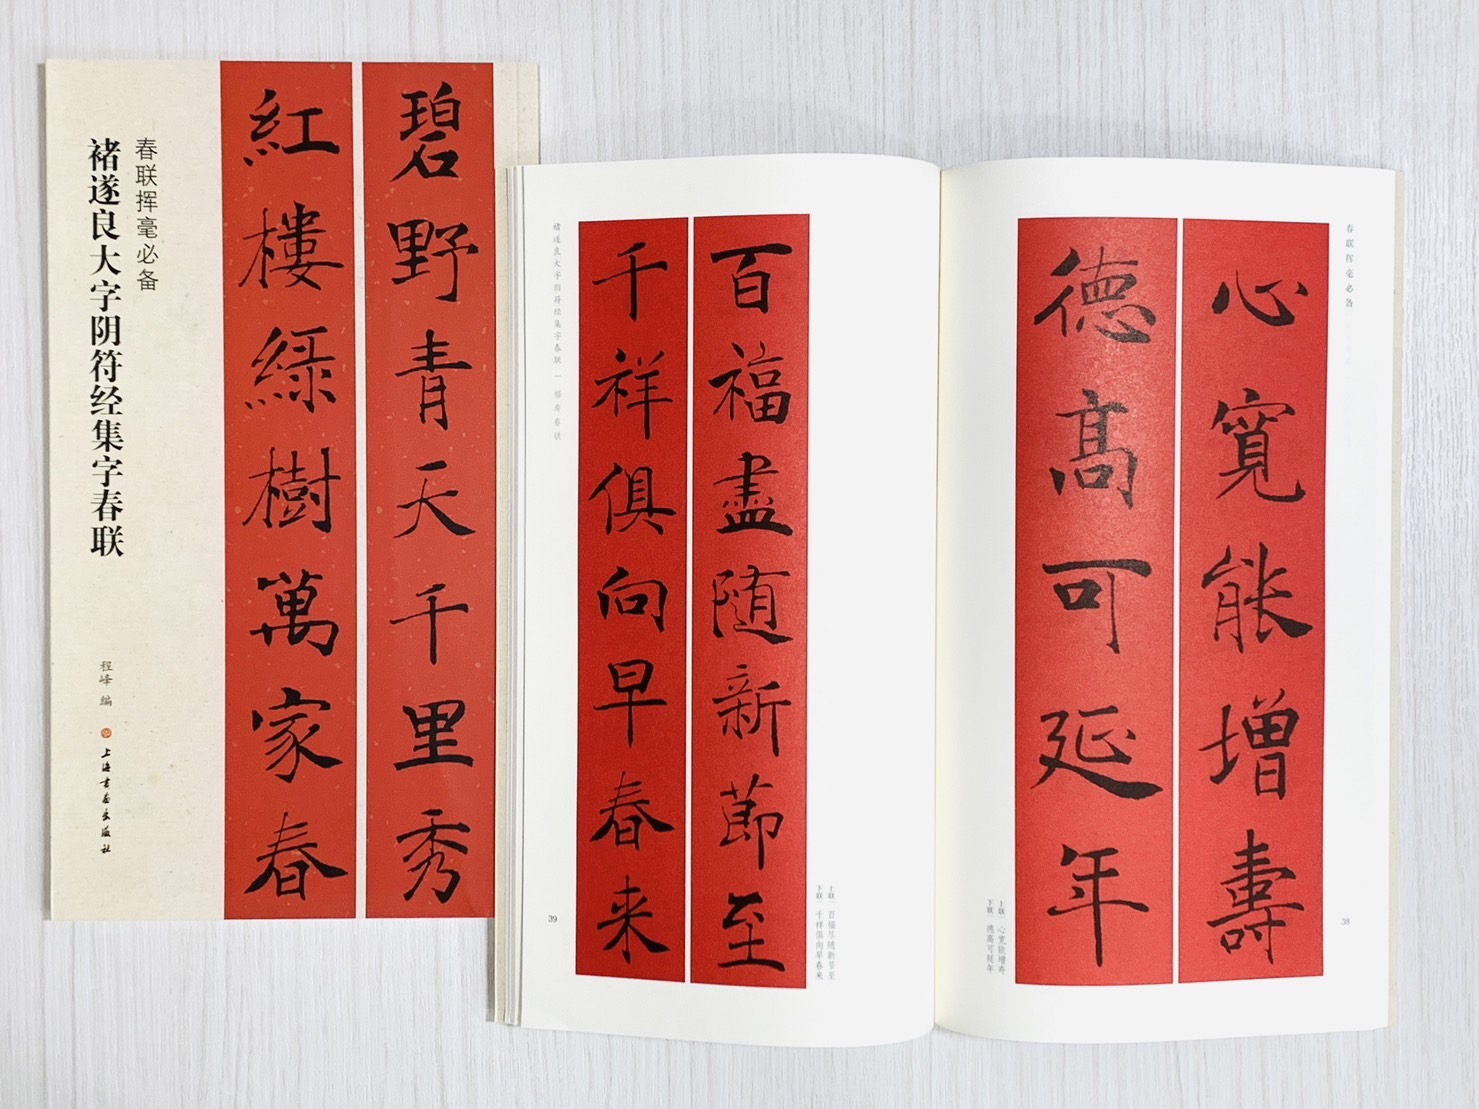 碧野青天千里秀
紅樓綠樹萬家春
春联挥毫必备
褚遂良大字阴符经集字春联
程峰 编
上海书画出版社
春联挥毫必备
心寬能增壽
德高可延年
上联｜心宽能增寿
下联｜德高可延年
38
百福盡隨新節至
千祥俱向早春来
上联｜百福尽随新节至
下联｜千祥俱向早春来
褚遂良大字阴符经集字春联｜福寿春联
39